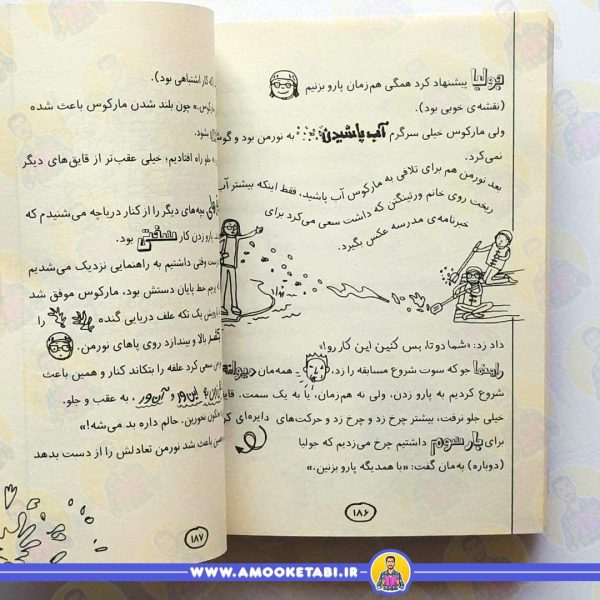 جولیا پیشنهاد کرد همگی هم‌زمان پارو بزنیم
(نقشه‌ی خوبی بود).
ولی مارکوس خیلی سرگرم آب پاشیدن به نورمن بود و گوش
نمی‌کرد.
بعد نورمن هم برای تلافی به مارکوس آب پاشید، فقط اینکه بیشتر آب
ریخت روی خانم ورثینگتن که داشت سعی می‌کرد برای
خبرنامه‌ی مدرسه عکس بگیرد.
داد زد: «شما دو تا، بس کنین این کارو!»
راینا جو که سوت شروع مسابقه را زد، همه‌مان دیوانه
شروع کردیم به پارو زدن، ولی نه هم‌زمان، یا به یک سمت. قایق
خیلی جلو نرفت، بیشتر چرخ زد و چرخ زد و حرکت‌های دایره‌ای کرد
برای بار سوم داشتیم چرخ می‌زدیم که جولیا
(دوباره) به‌مان گفت: «با همدیگه پارو بزنین.»
۱۸۶
کار اشتباهی بود).
مارکوس.» چون بلند شدن مارکوس باعث شده
شود.
جلو راه افتادیم؛ خیلی عقب‌تر از قایق‌های دیگر
بچه‌های دیگر را از کنار دریاچه می‌شنیدم که
پارو زدن کار سفتی بود.
درست وقتی داشتیم به راهنمایی نزدیک می‌شدیم
پرچم خط پایان دستش بود، مارکوس موفق شد
یک تکه علف دریایی گنده را
بالا و بیندازد روی پاهای نورمن.
سعی کرد علفه را بتکاند کنار و همین باعث
این‌ور و آن‌ور، به عقب و جلو.
تکون نخورین. حالم داره بد می‌شه!»
باعث شد نورمن تعادلش را از دست بدهد
۱۸۷
WWW.AMOOKETABI.IR